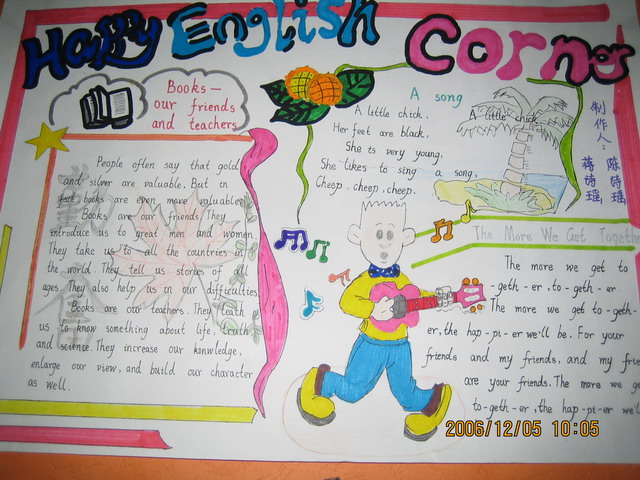 Happy English Corner
Books—
our friends
and teachers
People often say that gold
and silver are valuable. But in
fact books are even more valuable.
Books are our friends. They
introduce us to great men and women.
They take us to all the countries in
the world. They tell us stories of all
ages. They also help us in our difficulties.
Books are our teachers. They teach
us to know something about life, truth
and science. They increase our konwledge,
enlarge our view, and build our character
as well.
A song
A little chick,
A little chick
Her feet are black,
She is very young.
She likes to sing a song,
Cheep, cheep, cheep.
制作人：
陈诗瑶
蒋诗瑶
The More We Get Togeth
The more we get to
-geth-er, to-geth-er.
The more we get to-geth-
er, the hap-pi-er we'll be. For your
friends and my friends, and my frie
are your friends. The more we ge
to-geth-er, the hap-pi-er we'l
2006/12/05 10:05